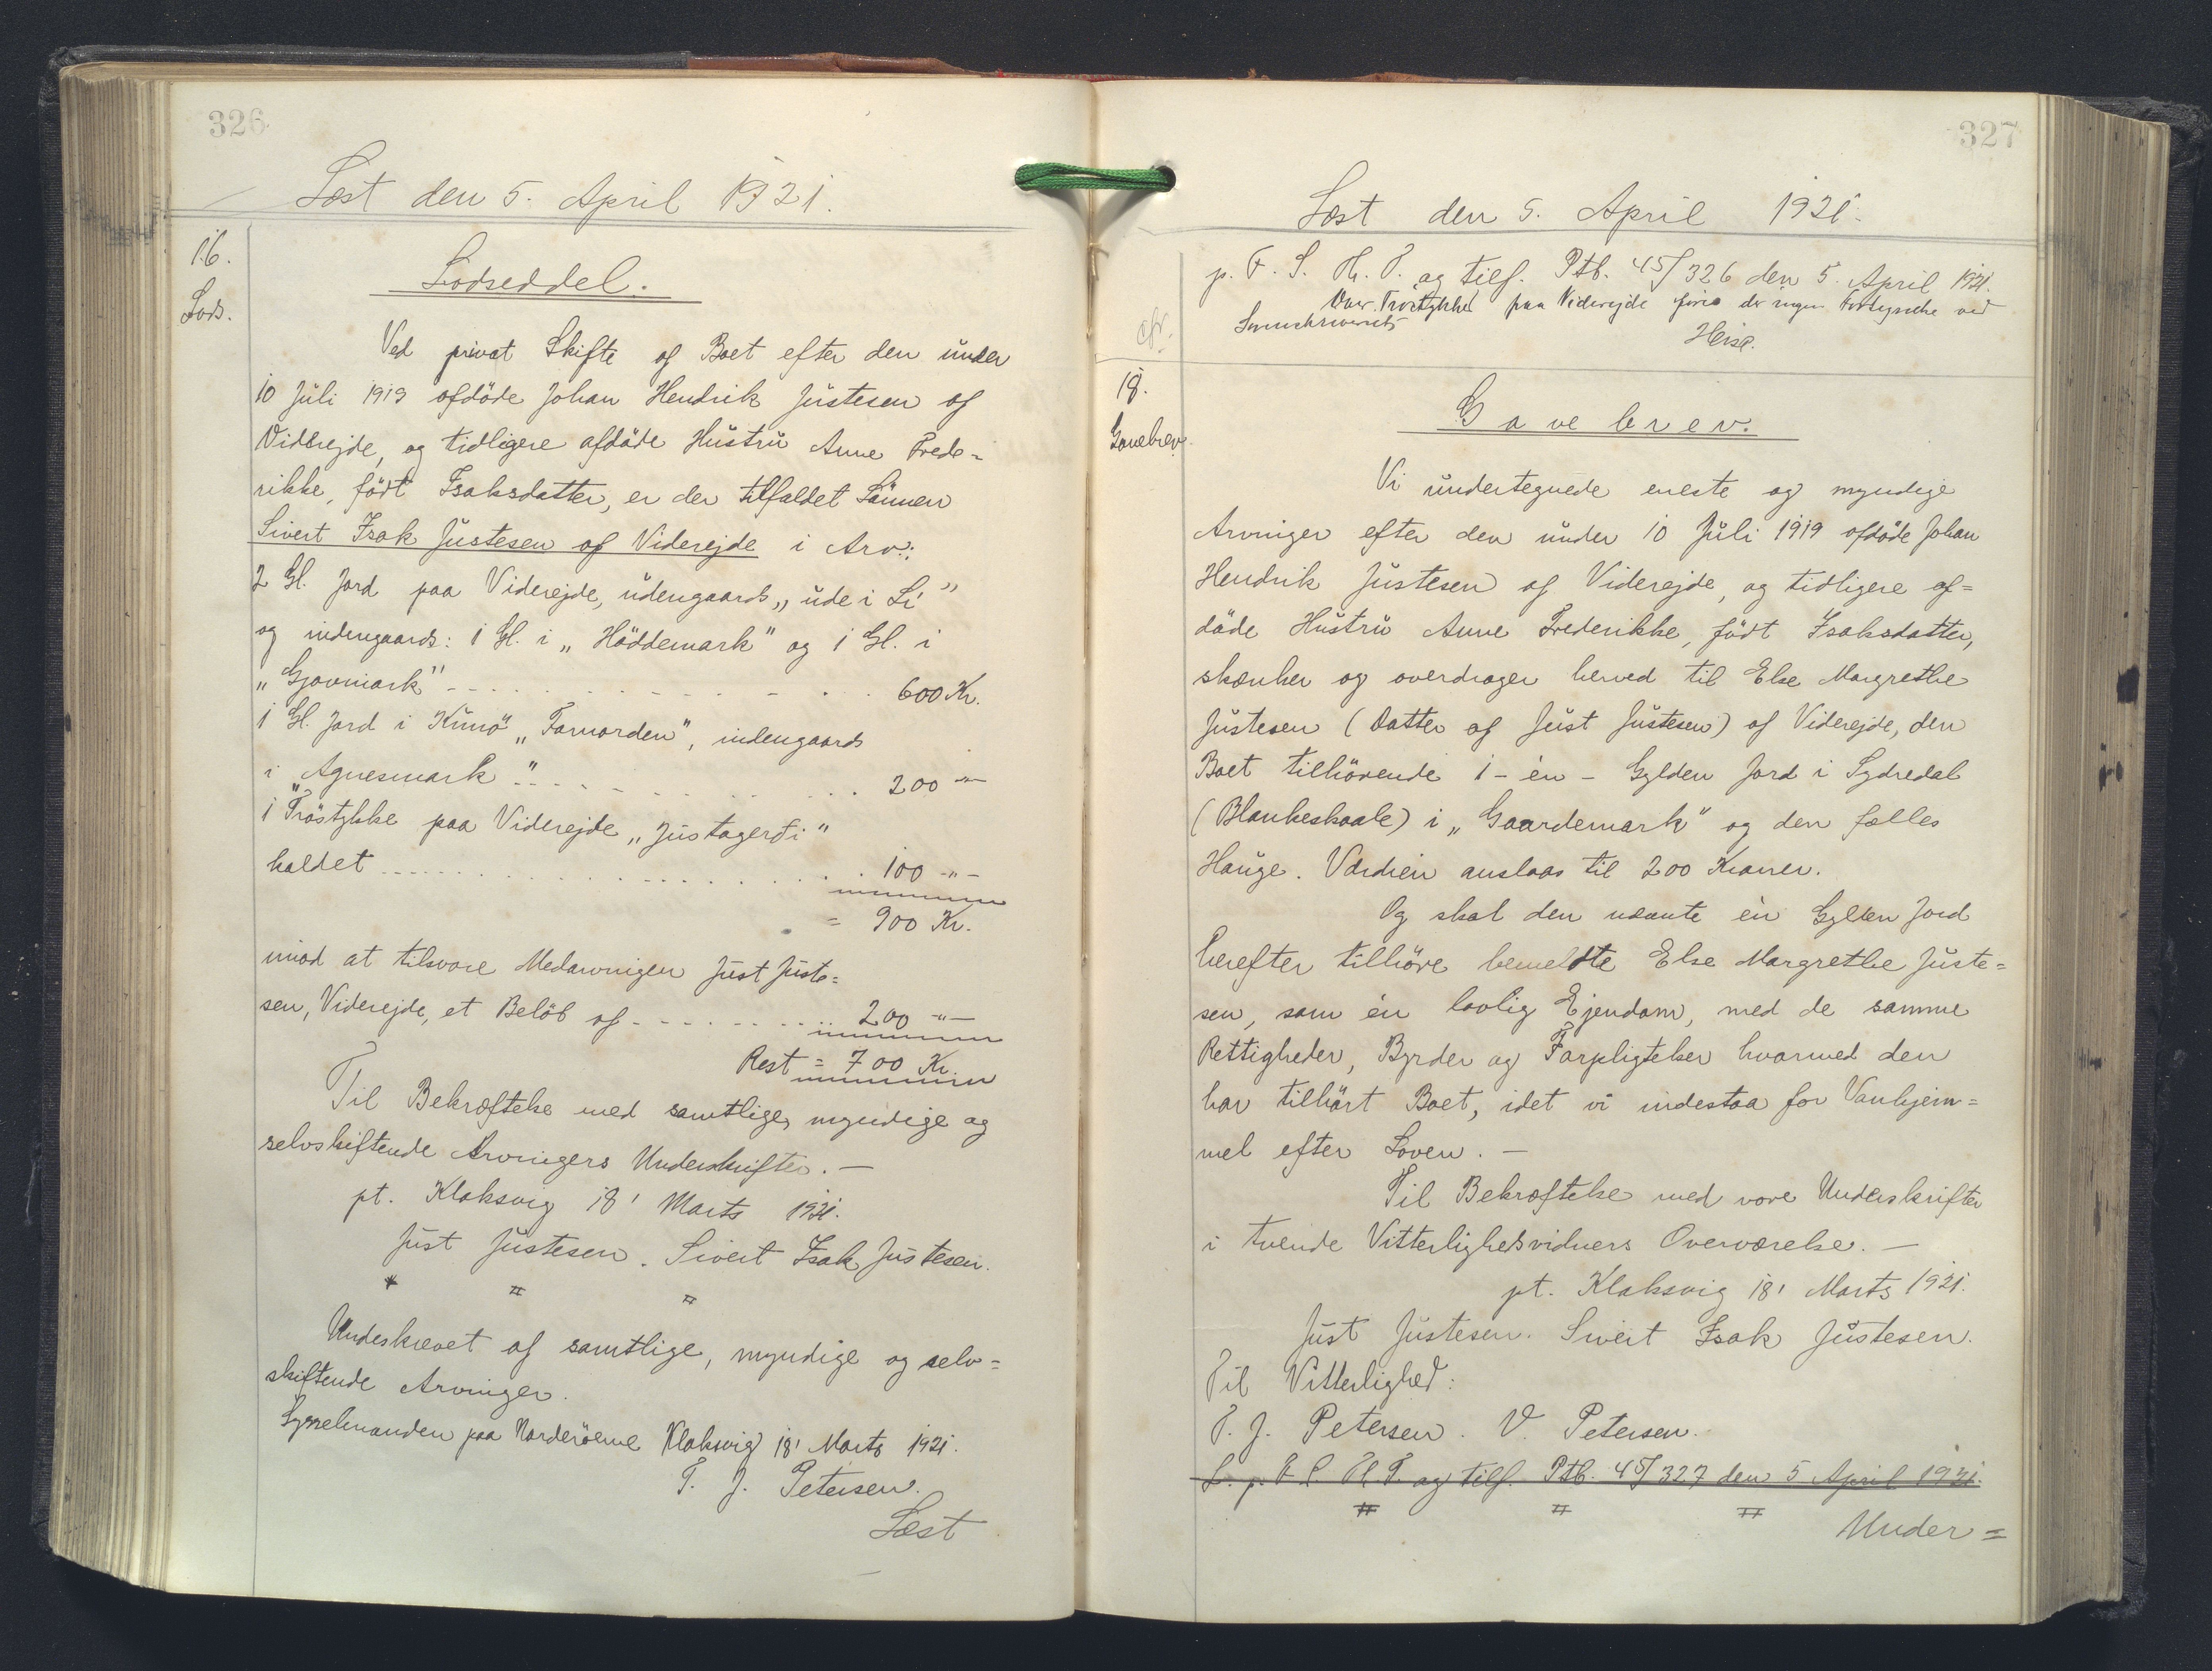 326
Læst den 5. April 1921.
16.
Lods.
Lodseddel.
Ved privat Skifte af Boet efter den under
10 Juli 1919 afdöde Johan Hendrik Justesen af
Viderejde, og tidligere afdöde Hustru Anne Frede=
rikke, födt Isaksdatter, er der tilfaldet Sönnen
Sivert Isak Justesen af Viderejde i Arv:
2 Gl. Jord paa Viderejde, udengaards „ude i Li"
og indengaards: 1 Gl. i „Höddemark" og 1 Gl. i
„Gjovmark" - - - - 600 Kr.
1 Gl. Jord i Kunö „Fornorden", indengaards
i „Agnesmark" - - - - 200 -"-
1 Tröstykke paa Viderejde „Justagerði"
kaldet - - - - 100 -"-
= 900 Kr.
imod at tilsvare Medarvingen Just Juste=
sen, Viderejde, et Belöb af - - - - 200 -"-
Rest = 700 Kr.
Til Bekræftelse med samtlige, myndige og
selvskiftende Arvingers Underskrifter. —
pt. Klaksvig 18' Marts 1921.
Just Justesen. Sivert Isak Justesen.
Underskrevet af samtlige, myndige og selv=
skiftende Arvinger.
Sysselmanden paa Norderöerne Klaksvig 18' Marts 1921.
T. J. Petersen.
Læst
327
Læst den 5. April 1921.
p. F. S. H. T. og tilf. Ptb. 45/326 den 5. April 1921.
Over Tröstykket paa Viderejde föres der ingen Fortegnelse ved
Sorenskriveriet
Heise.
cfr.
18.
Gavebrev.
Gavebrev.
Vi undertegnede eneste og myndige
Arvinger efter den under 10 Juli 1919 afdöde Johan
Hendrik Justesen af Viderejde, og tidligere af=
döde Hustru Anne Frederikke, födt Isaksdatter,
skænker og overdrager herved til Else Margrethe
Justesen (Datter af Just Justesen) af Viderejde, den
Boet tilhörende 1 - én - Gylden Jord i Sydredal
(Blankeskaale) i „Gaardemark" og den fælles
Hauge. Værdien anslaas til 200 Kroner.
Og skal den nævnte én Gylden Jord
herefter tilhöre bemeldte Else Margrethe Juste=
sen, som én lovlig Ejendom, med de samme
Rettigheder, Byrder og Forpligtelser hvormed den
har tilhört Boet, idet vi indestaa for Vanhjem=
mel efter Loven. —
Til Bekræftelse med vore Underskrifter
i tvende Vitterlighedsvidners Overværelse. —
pt. Klaksvig 18' Marts 1921.
Just Justesen. Sivert Isak Justesen.
Til Vitterlighed:
T. J. Petersen. V. Petersen.
L. p. F. S. H. T. og tilf. Ptb. 45/327 den 5 April 1921.
Under=